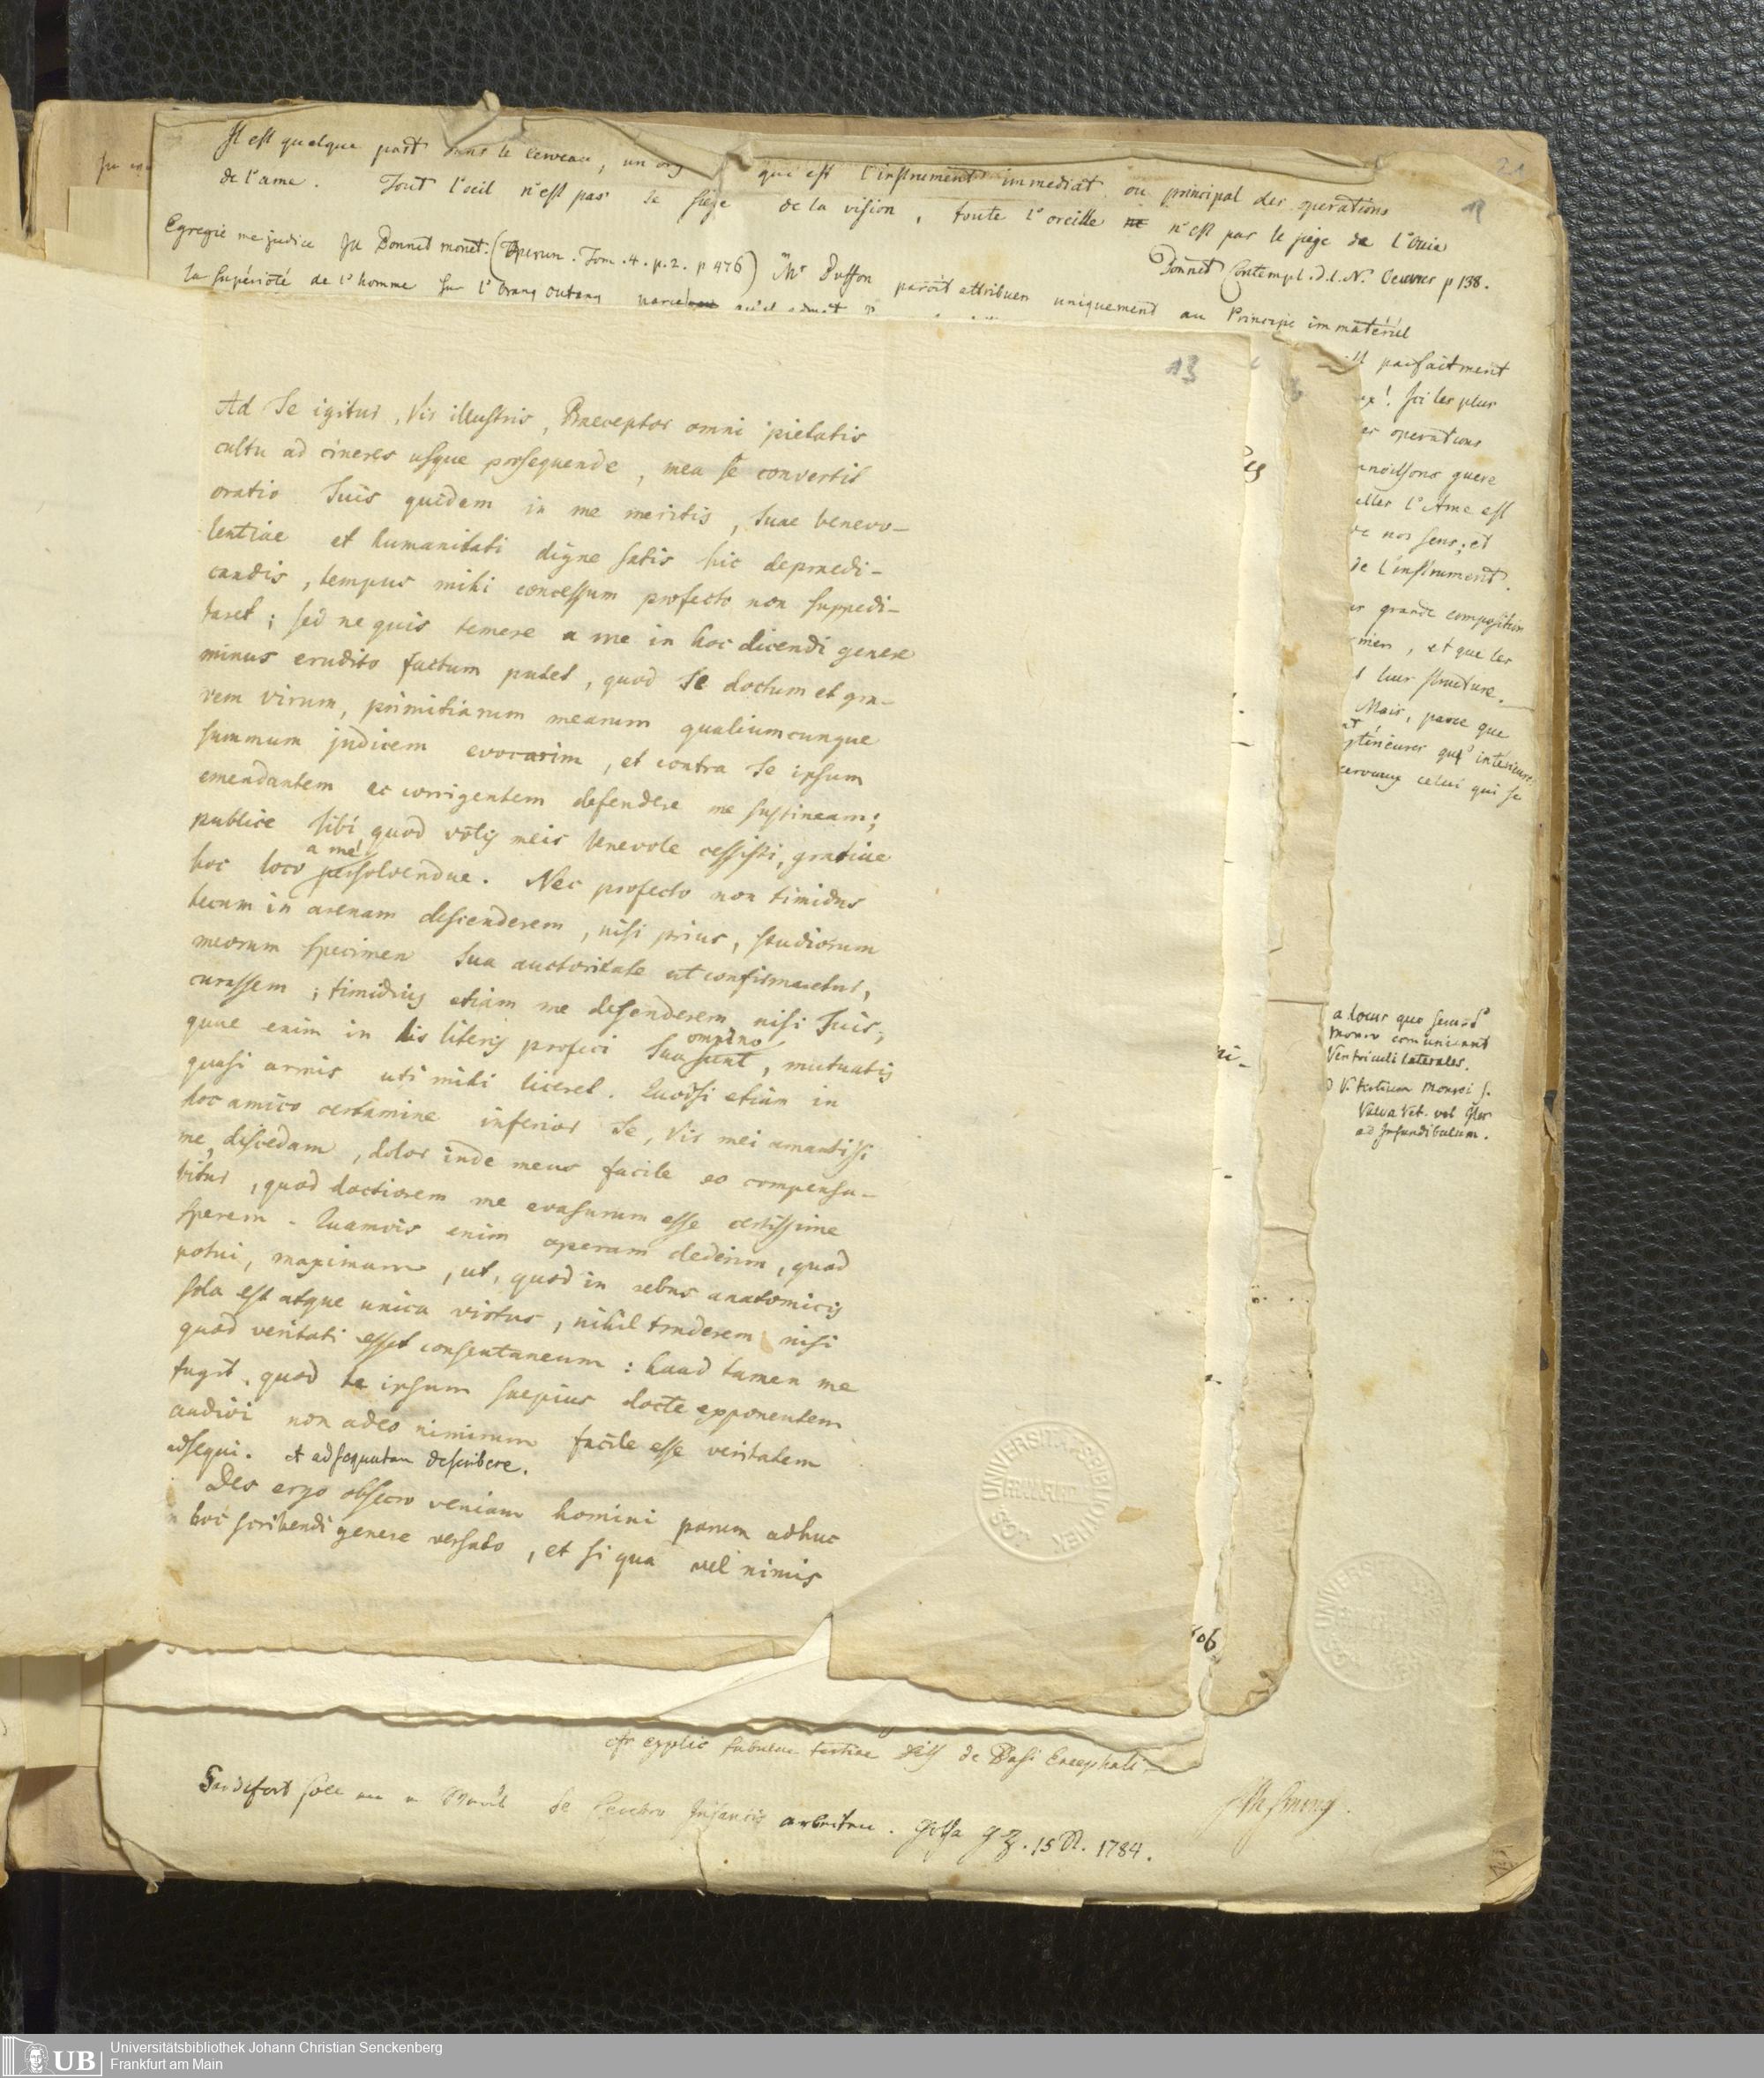 Il est quelque part dans le cerveau, un org qui est l'instrument immediat ou principal des operations
de l'ame. Tout l'oeil n'est pas le siege de la vision, toute l'oreille n'est pas le siege de l'Ouie
Bonnet Contempl. d. l. N. Oeuvres p 138.
Egregie me judice Bonnet monet. Tom. 4. p. 2. p 476) Mr Buffon paroit attribuer uniquement au Principe immatériel
la supérioté de l'homme sur l'Orang Outang
21
12
13
Ad Te igitur, Vir illustris, Praeceptor omni pietatis
cultu ad cineres usque prosequende, mea se convertit
oratio Tuis quidem in me meritis, Tuae benevo-
lentiae et humanitati digne satis hic depraedi-
candis, tempus mihi concessum profecto non suppedi-
taret; sed ne quis temere a me in hoc dicendi genere
minus erudito factum putet, quod Te doctum et gra-
vem virum, primitiarum mearum qualiumcunque
summum judicem evocarim, et contra Te ipsum
emendantem ac corrigentem defendere me sustineam;
publice Tibi quod votis meis benevole cessisti, gratiae
hoc loco a me persolvendae. Nec profecto non timidus
tecum in arenam descenderem, nisi prius, studiorum
meorum specimen Tua auctoritate ut confirmaretur,
curassem; timidius etiam me defenderem nisi Tuis,
quae enim in his literis profeci Tua omnino sunt, mutuatis
quasi armis uti mihi liceret. Quodsi etiam in
hoc amico certamine inferior Te, Vir mei amantissi
me, discedam, dolor inde meus facile eo compensa-
bitur, quod doctiorem me evasurum esse certissime
sperem. Quamvis enim operam dederim, quod
potui, maximam, ut, quod in rebus anatomicis
sola est atque unica virtus, nihil traderem nisi
quod veritati esset consentaneum: haud tamen me
fugit, quod te ipsum saepius docte exponentem
audivi non adeo nimirum facile esse veritatem
adsequi. et adsequutam describere.
Des ergo obsecro veniam homini parum adhuc
in hoc scribendi genere versato, et si qua vel nimis
parfaitment
Ici les plus
operations
guere
l'Ame est
nos sens; et
de l'instrument.
grande composition
, et que les
leur structure.
Mais, parce que
celui qui se
a locus quo secund
monro comunicant
Ventriculi laterales.
V. tertium Monroi s.
ad Infundibulum.
cfr explic tabulae tertiae Diss de Basi Encephali
Sandifort de Cerebro Infantis . 15 . 1784.
UNIVERSITÄTSBIBLIOTHEK
UB
Universitätsbibliothek Johann Christian Senckenberg
Frankfurt am Main